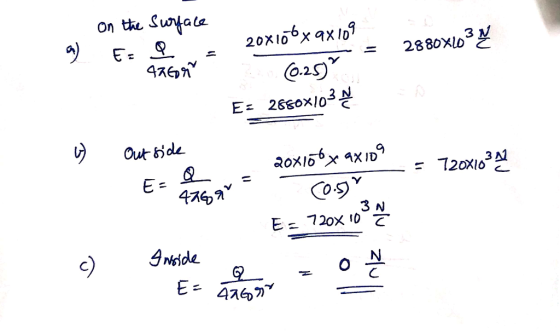 On the Surface
a) E = Q / 4πε₀r² = 20×10⁻⁶ × 9×10⁹ / (0.25)² = 2880×10³ N/C
E = 2880×10³ N/C
b) Outside
E = Q / 4πε₀r² = 20×10⁻⁶ × 9×10⁹ / (0.5)² = 720×10³ N/C
E = 720×10³ N/C
c) Inside
E = Q / 4πε₀r² = 0 N/C